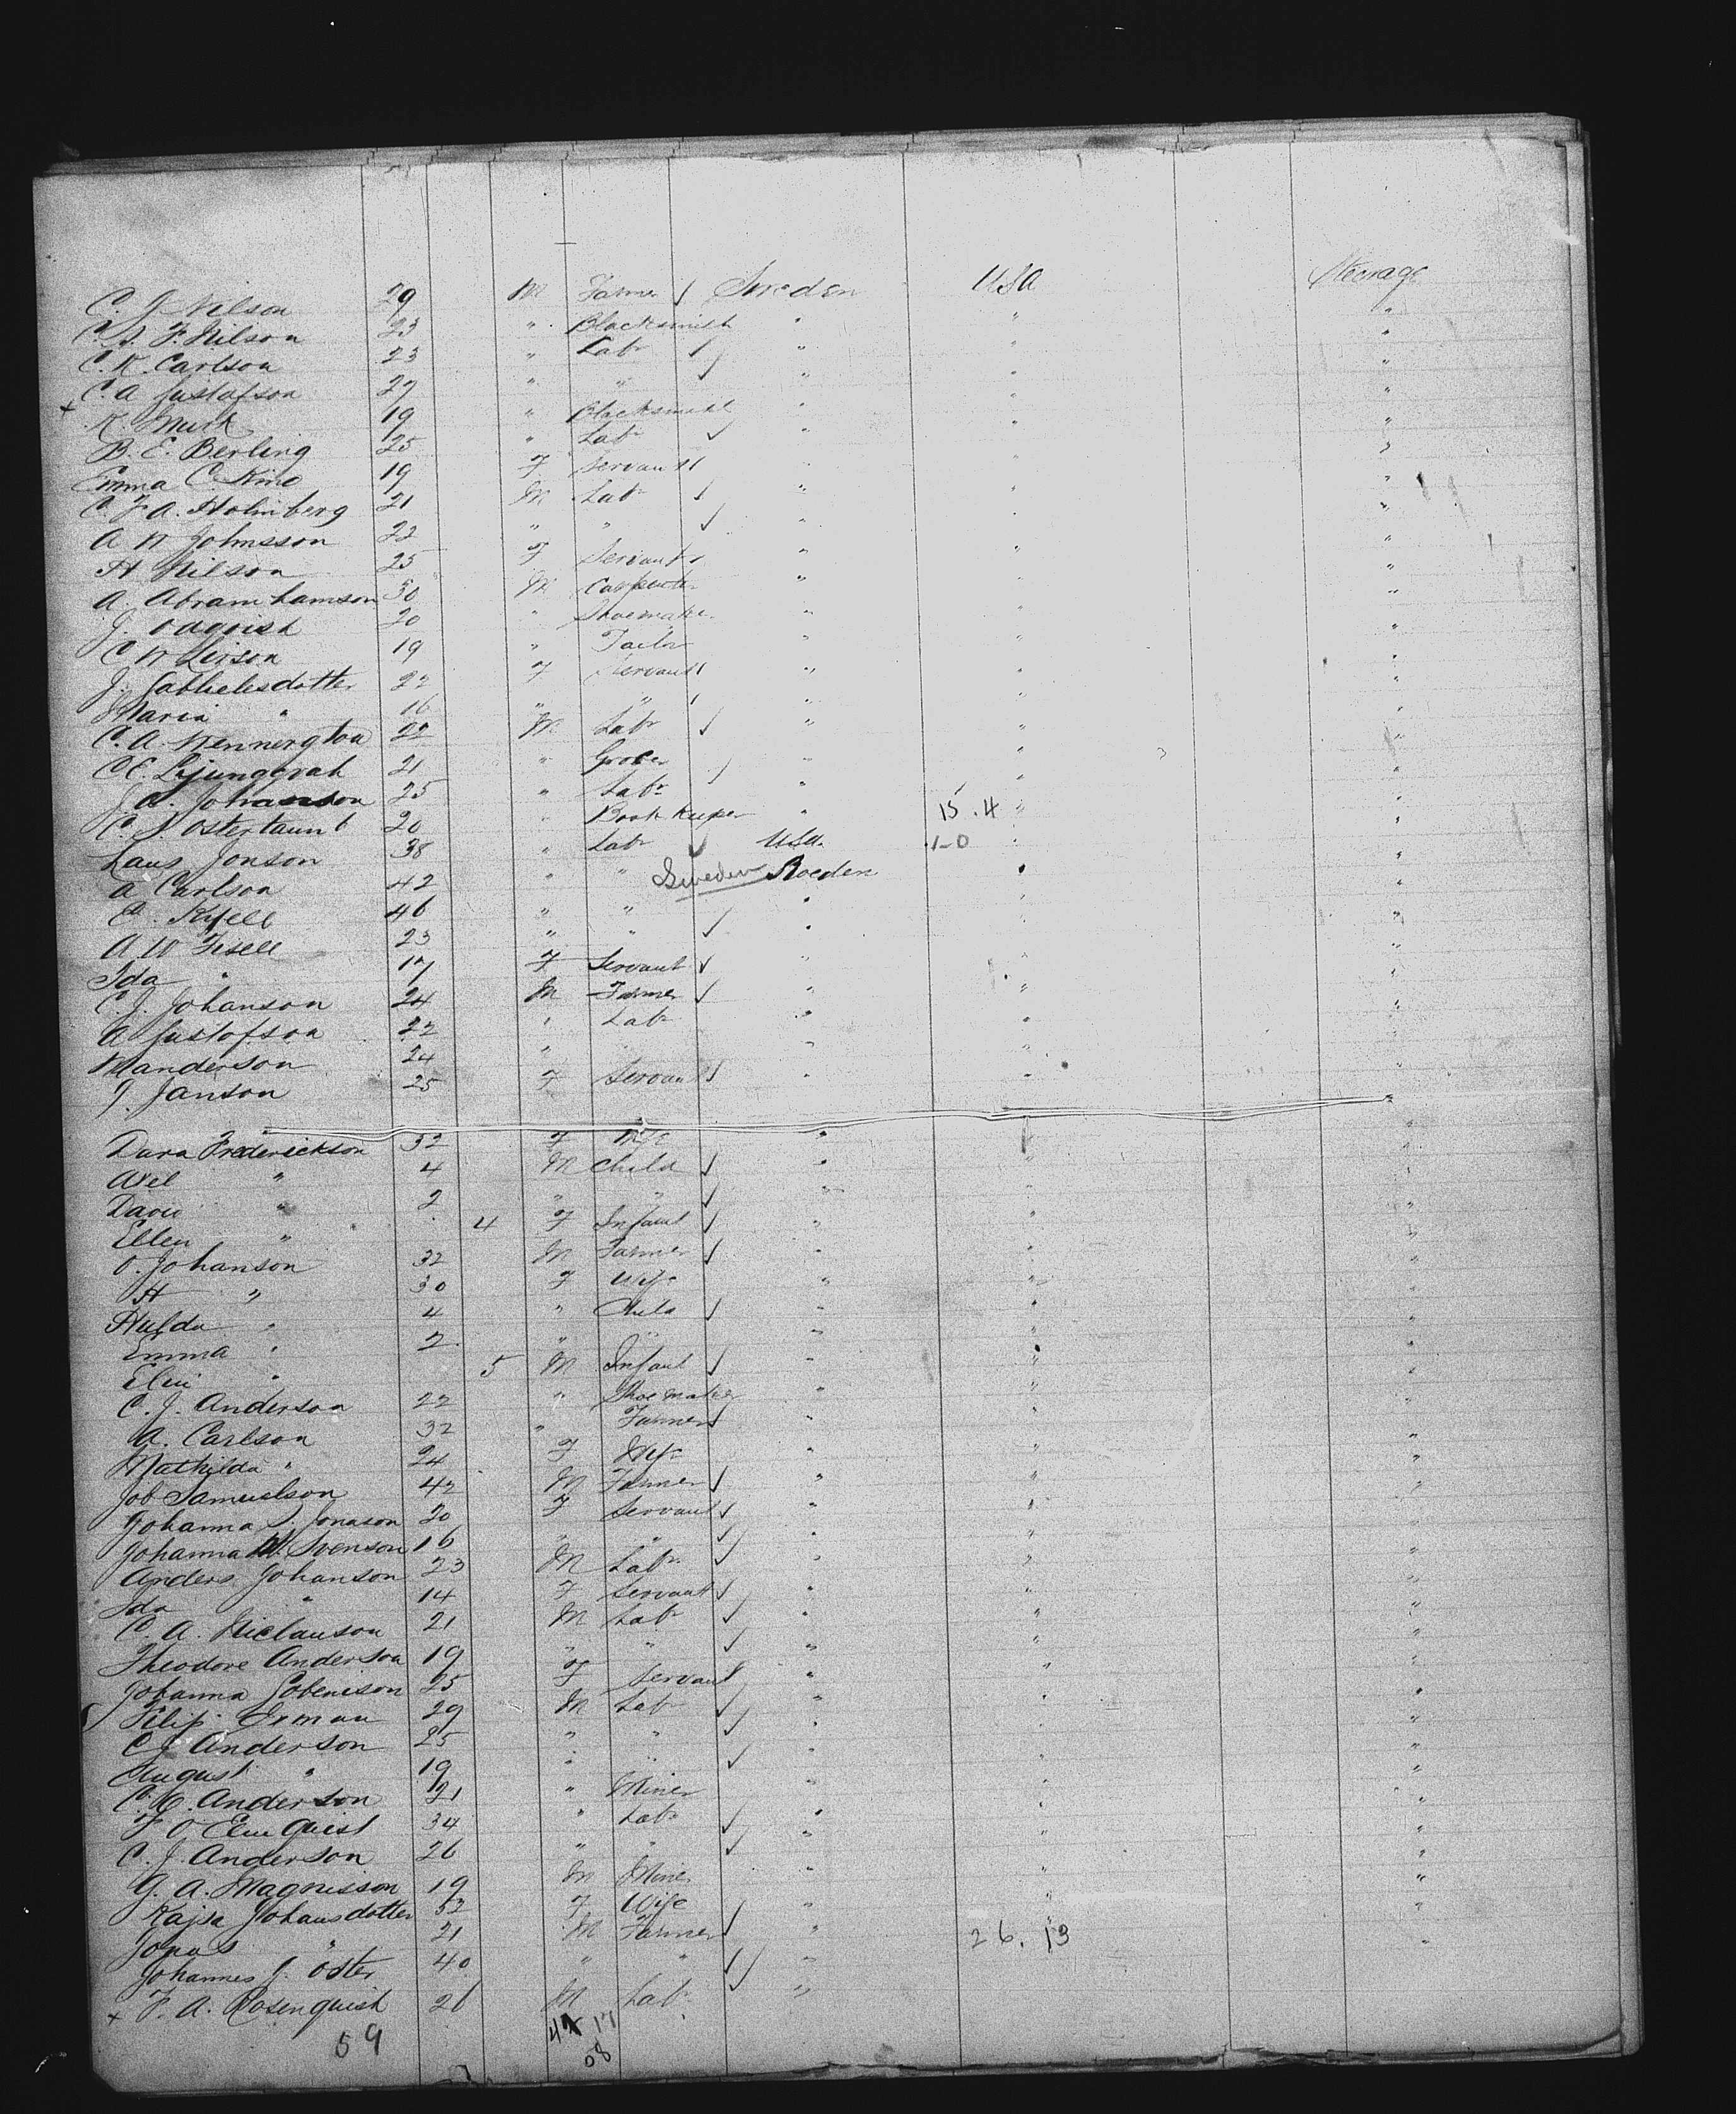 C. J. Nilson 29 M Farmer Sweden USA Steerage
C. A. F. Nilson 23 " Blacksmith " " "
C. K. Carlson 23 " Labr " " "
C. A Gustafson 27 " " " " "
K. 19 " Blacksmith " " "
B. E. Berling 25 " Labr " " "
Emma C. 19 F Servant " " "
C. F A. Holmberg 21 M Labr " " "
A W Johnsson 22 " " " " "
H Nilson 25 F Servant " " "
A. Abramhamson 30 M Carpenter " " "
J. 20 " Shoemaker " " "
C W 19 " Tailor " " "
J. Gabrielsdotter 22 F Servant " " "
Maria " 16 " " " " "
C. A. Wennergton 22 M Labr " " "
C E. Ljunggrah 21 " Grocer " " "
J A. Johansson 25 " Labr " " "
C. J. Ostertaunt 20 " Book Keeper " 15.4 " "
Laus Jonson 38 " Labr USA. 1-0 " "
A Carlson 42 " " Sweden Sweden " "
C. Kjell 46 " " " " "
A W Fisell 23 " " " " "
Ida " 17 F Servant " " "
C. J. Johanson 24 M Farmer " " "
A Gustofson 22 " Labr " " "
W anderson 24 " " " " "
J. Janson 25 F Servant " " "
Dara Frederickson 32 F Wife " " "
Axel " 4 M Child " " "
David " 2 " " " " "
Ellen " 4 F Infant " " "
O. Johanson 32 M Farmer " " "
H " 30 F Wife " " "
Hulda " 4 " Child " " "
Emma " 2 " " " " "
Elin " 5 M Infant " " "
C. J. Anderson 22 " Shoemaker " " "
A. Carlson 32 " Farmer " " "
Mathilda " 24 F Wife " " "
Job Samuelson 42 M Farmer " " "
Johanna S. Jonason 20 F Servant " " "
Johanna M. Svenson 16 " " " " "
Anders Johanson 23 M Labr " " "
Ida " 14 F Servant " " "
C. A. Niclauson 21 M Labr " " "
Theodore Anderson 19 " " " " "
Johanna 25 F Servant " " "
Filip 29 M Labr " " "
C J Anderson 25 " " " " "
August " 19 " " " " "
C. C. Anderson 21 " Miner " " "
F O Elmquist 34 " Labr " " "
C. J. Anderson 26 " " " " "
G. A. Magnisson 19 M Miner " " "
Kajsa Johansdotter 52 F Wife " " "
Jonas " 21 M Farmer " 26.13 "
Johannes J. Oster 40 " " "
+ F. A. Rosenquist 26 M Labr "
59 42 17
58